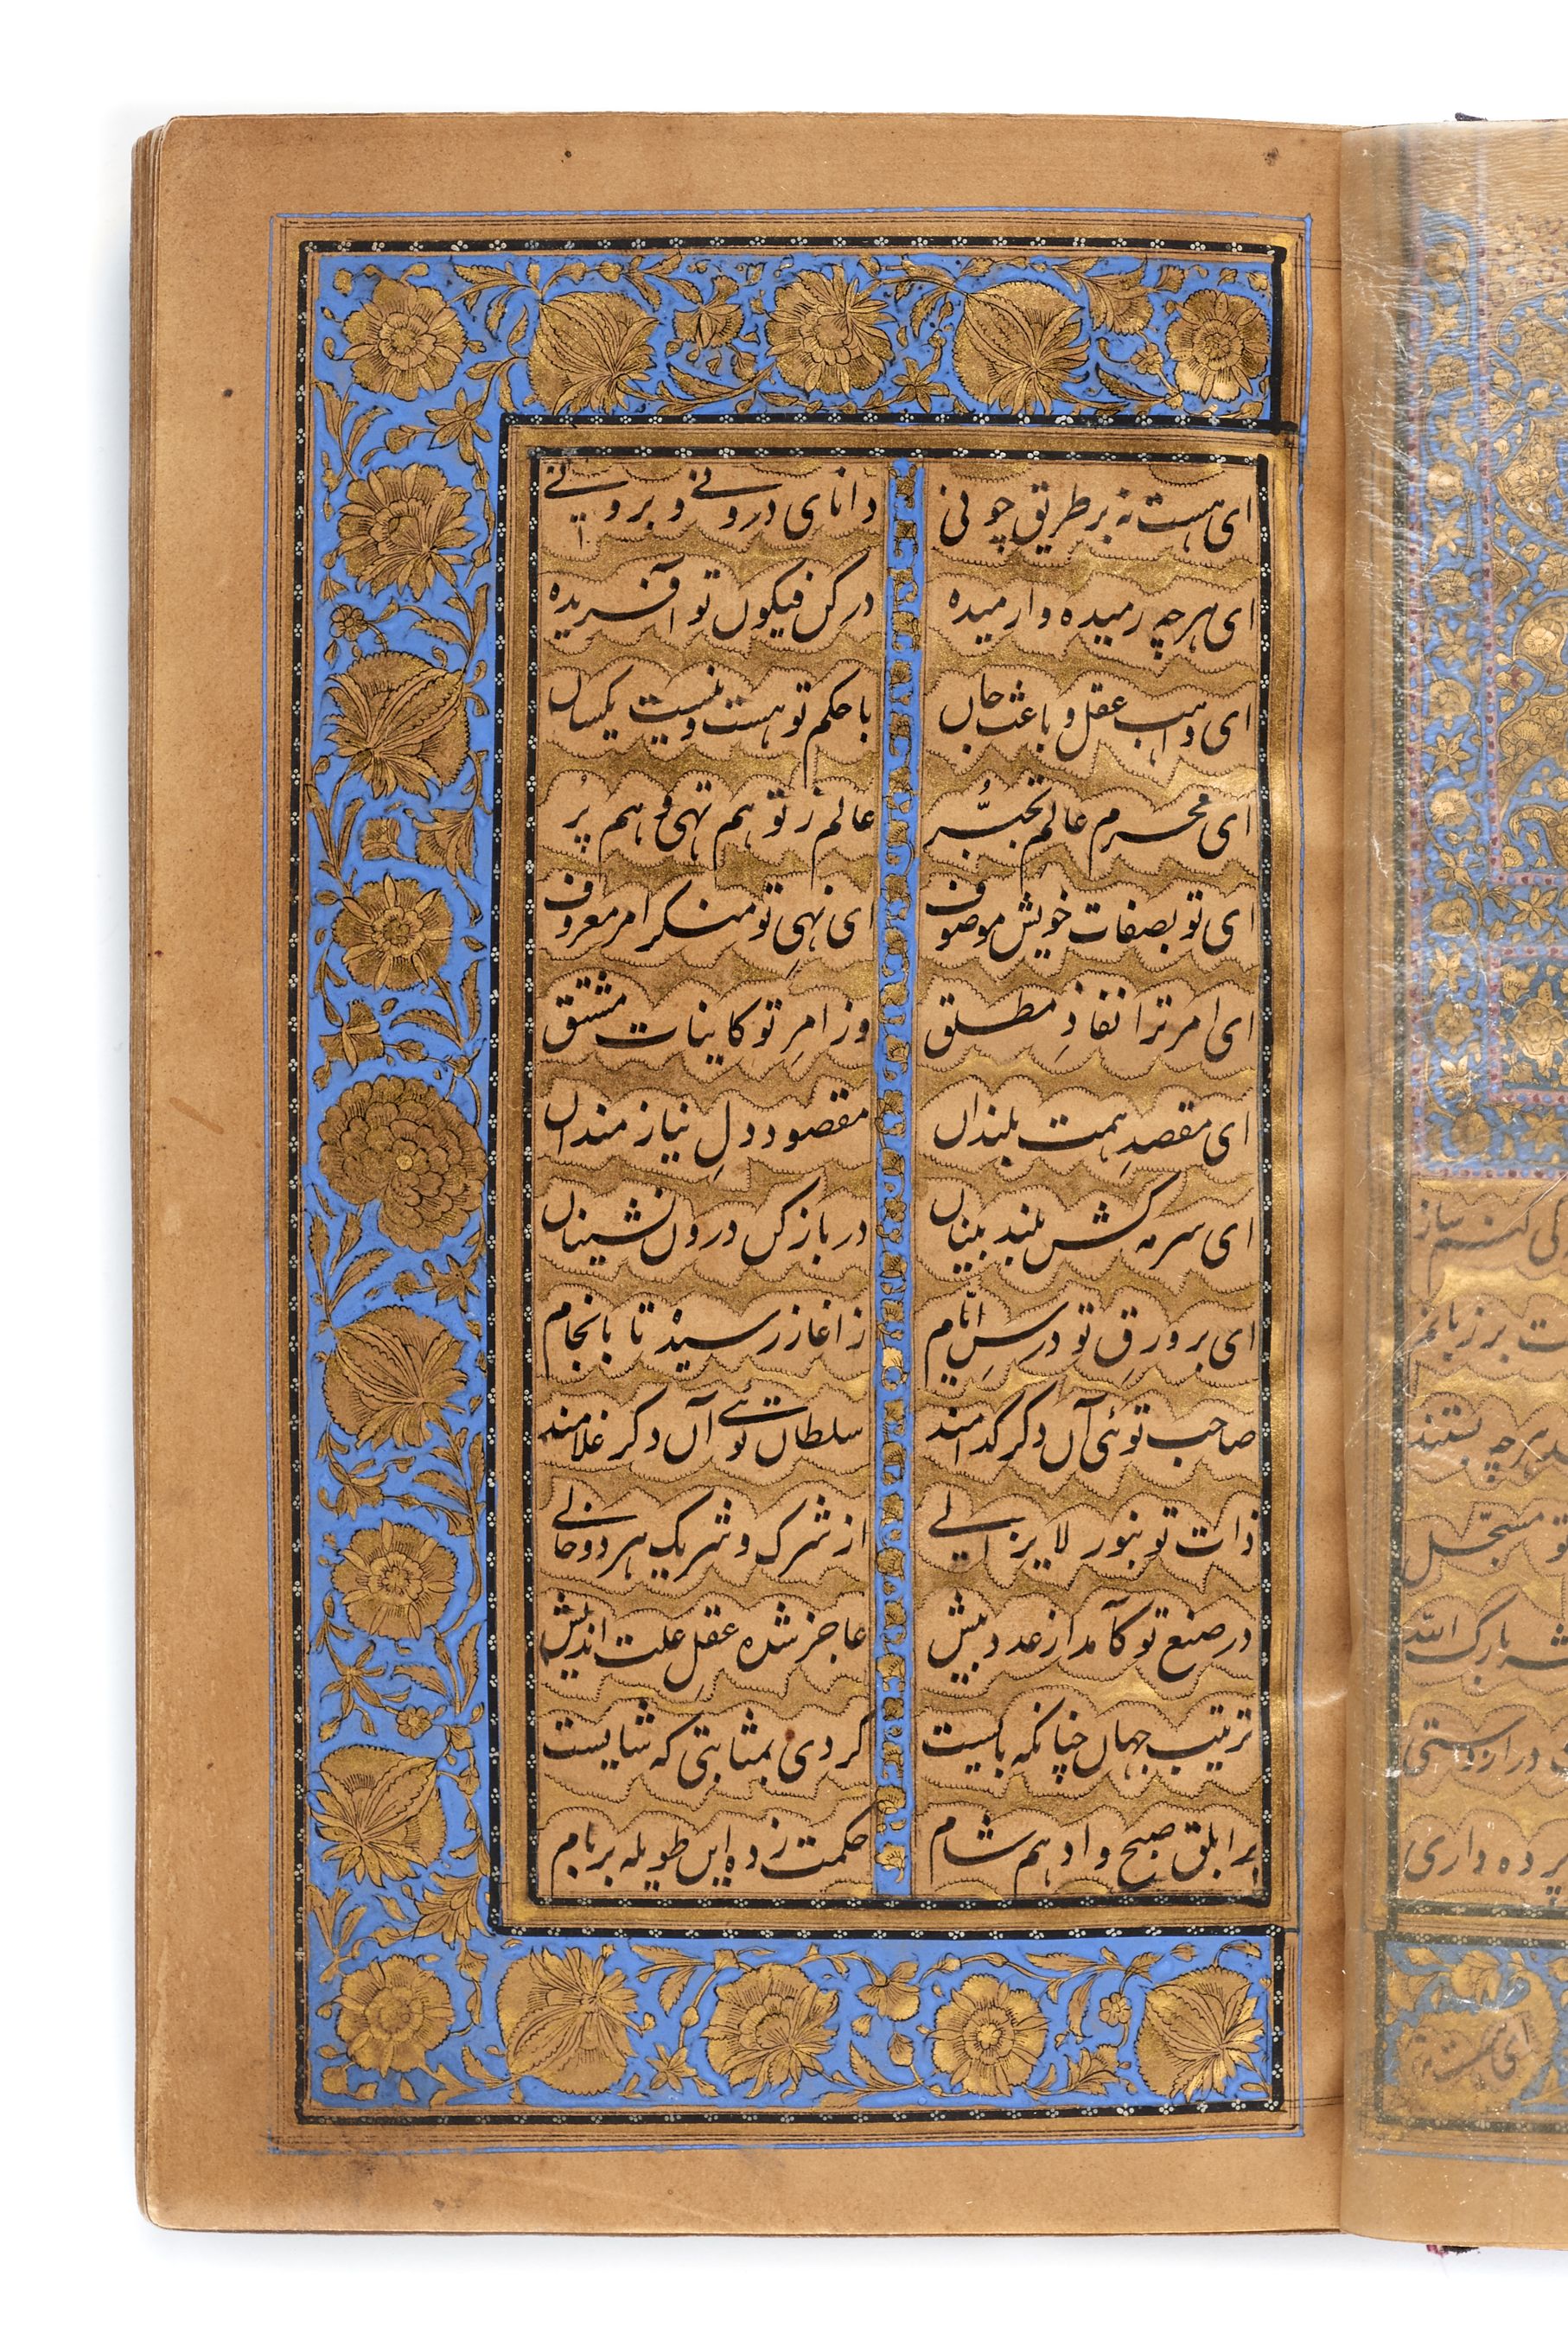 ای هست نه بر طریق چونی دانای درونی و برونی
ای هرچه رمیده وارمیده در کن فیکون تو آفریده
ای واهب عقل و باعث جان با حکم تو هست و نیست یکسان
ای محرم عالم تحیّر عالم ز تو هم تهی و هم پُر
ای تو بصفات خویش موصوف ای نهیِ تو منکر امر معروف
ای امر ترا نفاذِ مطلق وز امرِ تو کاینات مشتق
ای مقصدِ همت بلندان مقصود دلِ نیازمندان
ای سرمه کش بلند بینان در باز کن درون نشینان
ای بر ورقِ تو درسِ ایّام ز اغاز رسیدْ تا بانجام
صاحب توئی آن دگر کدامند سلطان توئی آن دگر غلامند
ذات تو بنور لایزالی از شرک و شریک هر دو خالی
در صنع تو کآمد از عدد بیش عاجز شده عقلِ علت اندیش
ترتیب جهان چنانکه بایست کردی بمثابتی که شایست
بر ابلق صبح و ادهم شام حکمت زده این طویله بر بام
ت بر زبانم
هرچه بستند
مسجّل
بارک الله
درازدستی
پرده داری
ای هست نه